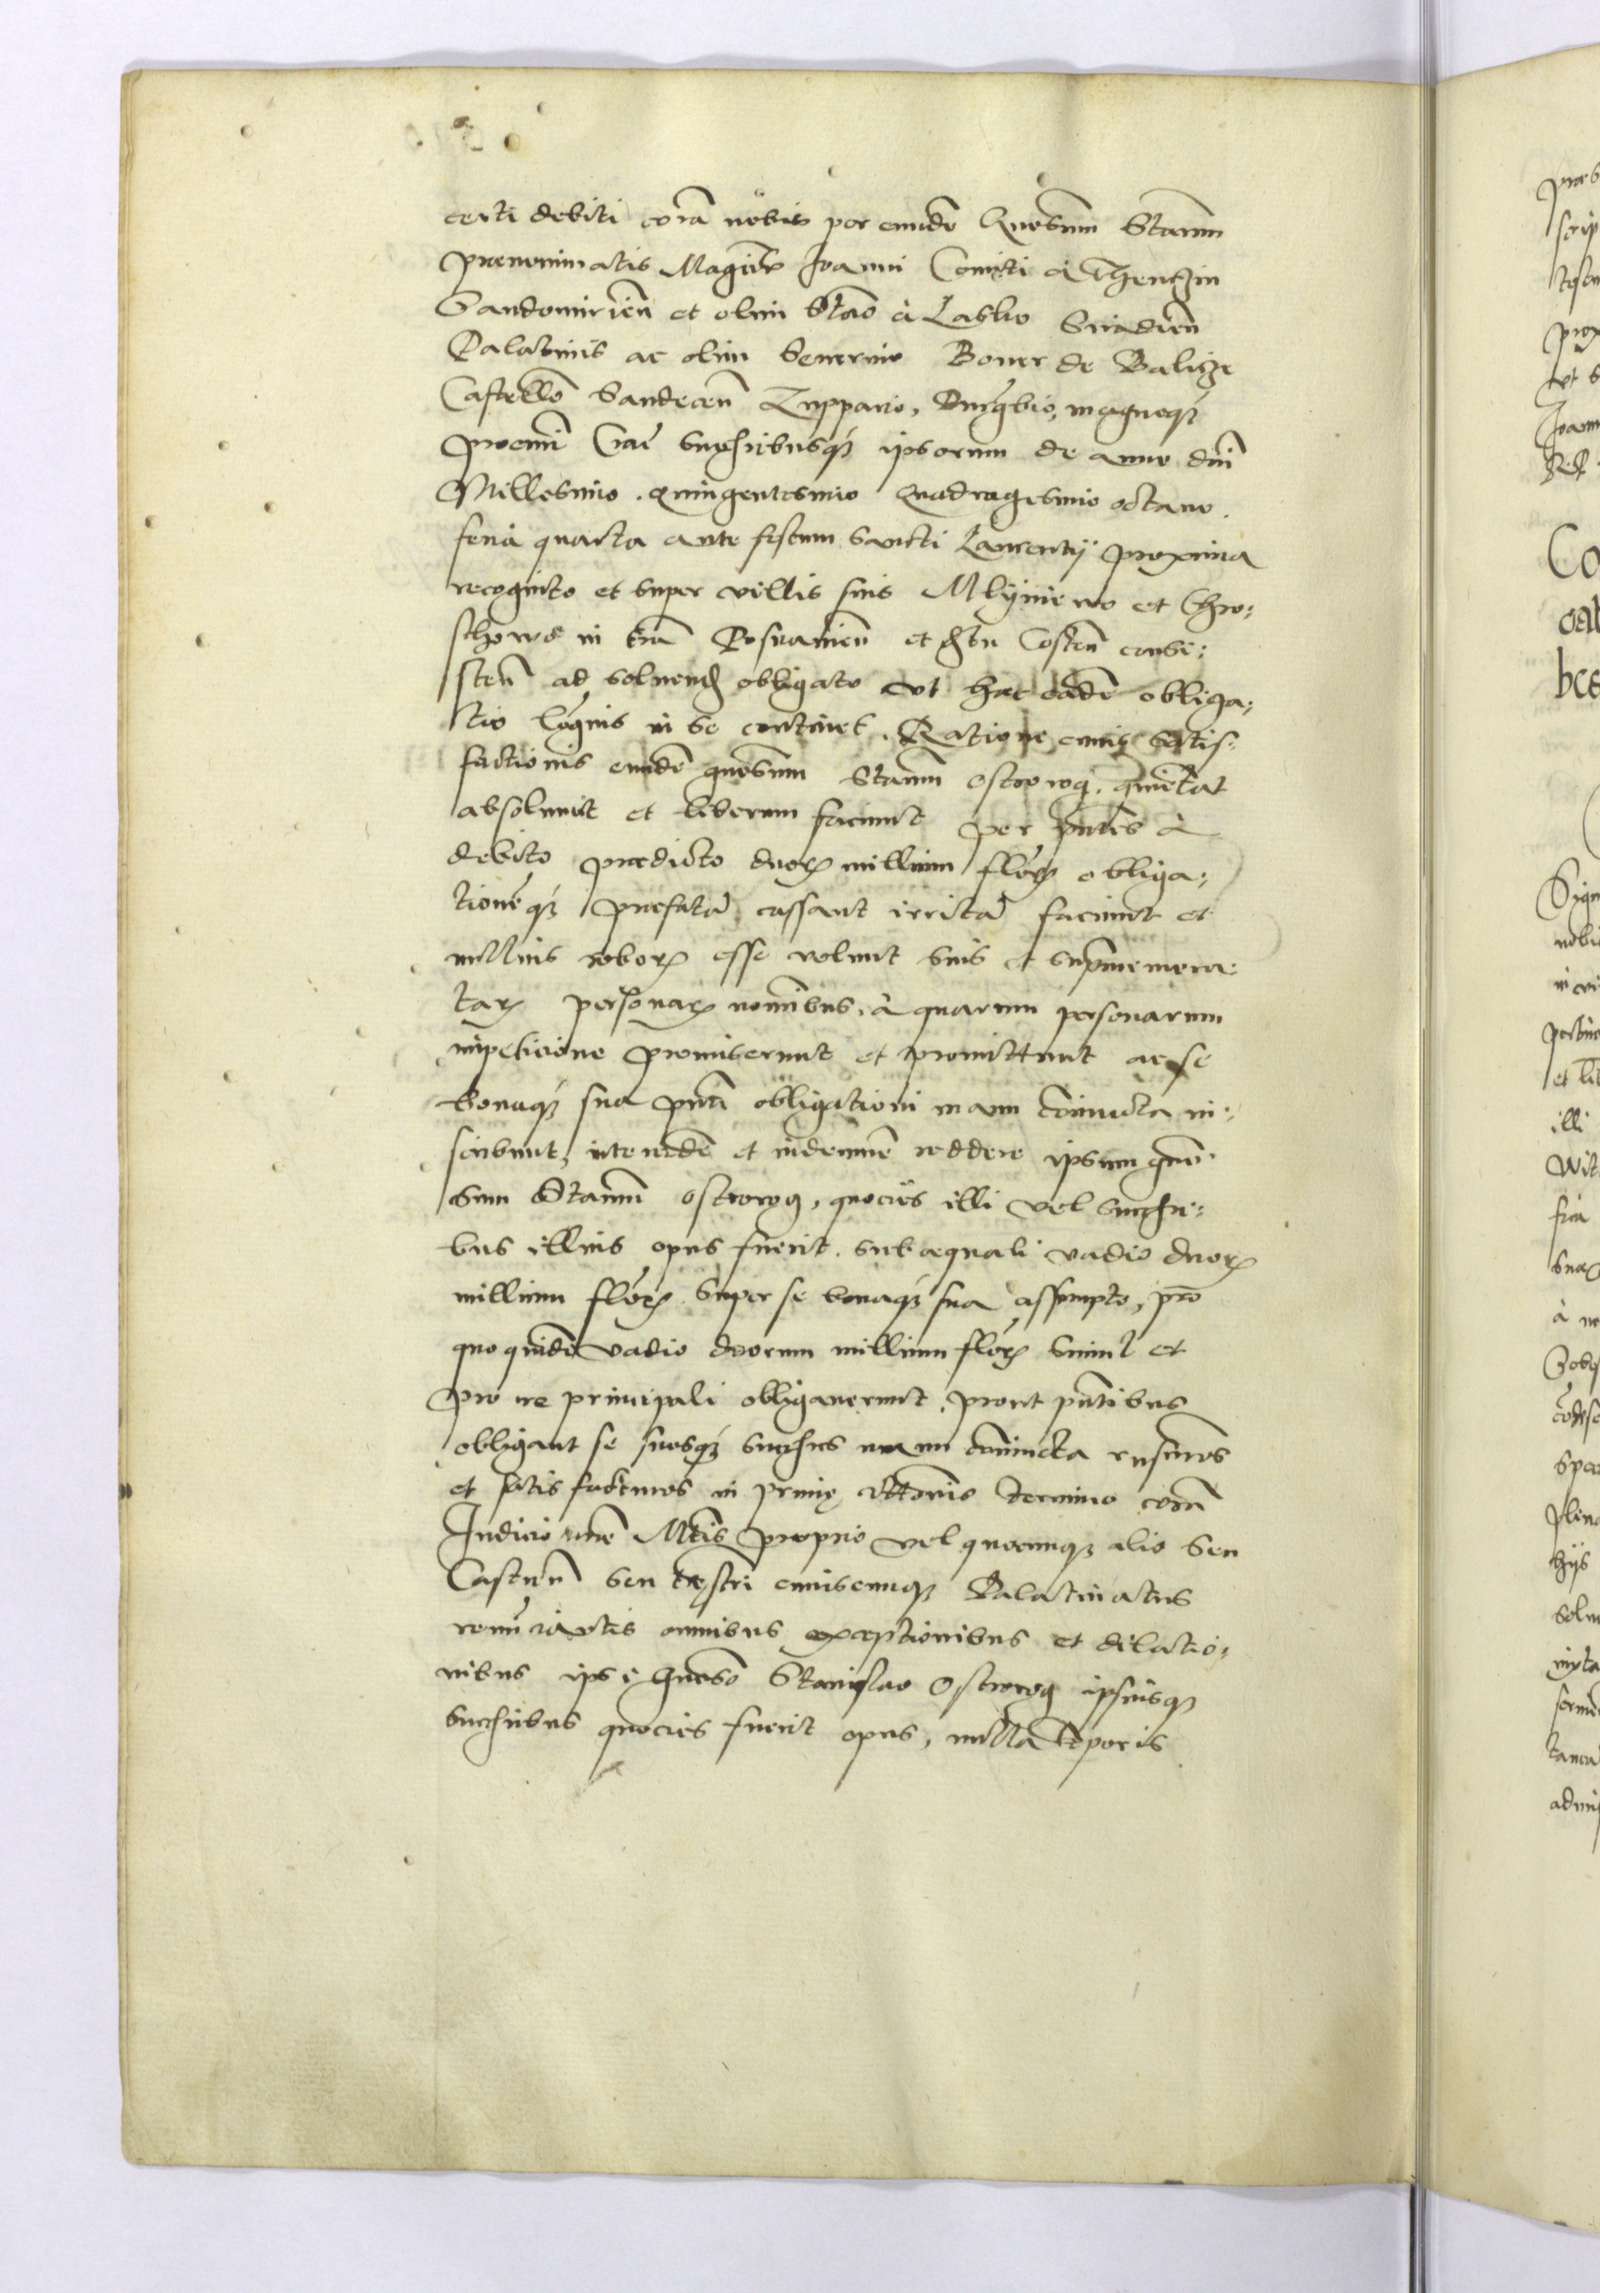 certi debiti corã nobis per eundẽ Gnosum Stanum
prænominatis Magcis Joanni Comiti à Thenczin
Sandomirien̄ et olim Stao à Lasko Siradien̄
Palatinis ac olim Severino Boner de Balicze
Castellõ Sandecen̄ Zuppario, Burgrbio, magnoqȝ
procuri Crac̄ successibusqȝ ipsorum de anno dnĩ
Millesimo quingentesimo quadragesimo octavo
feria quarta ante festum sancti Laurentij proxima
recognito et super villis suis Mlijniewo et Chro:
schowo in tr̃a Posnanien̄ et dstu Costen̄ consi:
sten̄ ad solvend obligato ut hæc eadẽ obliga:
tio lõgius in se continet. Ratione cuius satis:
factionis eundẽ gnosum Stanum Ostrorog, quietat
absolvunt et liberum faciunt per pñtes à
debito prædicto duorȝ millium flõrȝ obliga:
tionẽqȝ præfatã cassant irritã faciunt et
nullius roborȝ esse volunt suis et supramemora:
tarȝ personarȝ nominibus, à quarum personarum
impetitione promiserunt et promittunt ac se
bonaqȝ sua pñti obligationi manu coniuncta in:
scribunt, intercedẽ et indemnẽ reddere ipsum gno:
sum Stanum Ostrorog, quocies illi vel success:
bus illius opus fuerit sub æquali vadio duorȝ
millium flõrȝ super se bonaqȝ sua assumpto, pro
quo quidẽ vadio duorum millium flõrȝ simul et
pro re principali obligaverunt, prout pñtibus
obligant se suosqȝ succssus manu coniuncta rñsuros
et satis facturos in primo cittonis termino corã
Judicio uñe Mtis proprio vel quocunqȝ alio seu
Castren̄ seu trestri cuiuscunqȝ Palatinatus
renũciantes omnibus exceptionibus et dilatio:
nibus ipsi Gnoso Stanislao Ostrorog ipsiusqȝ
successibus quocies fuerit opus, nulla tẽporis